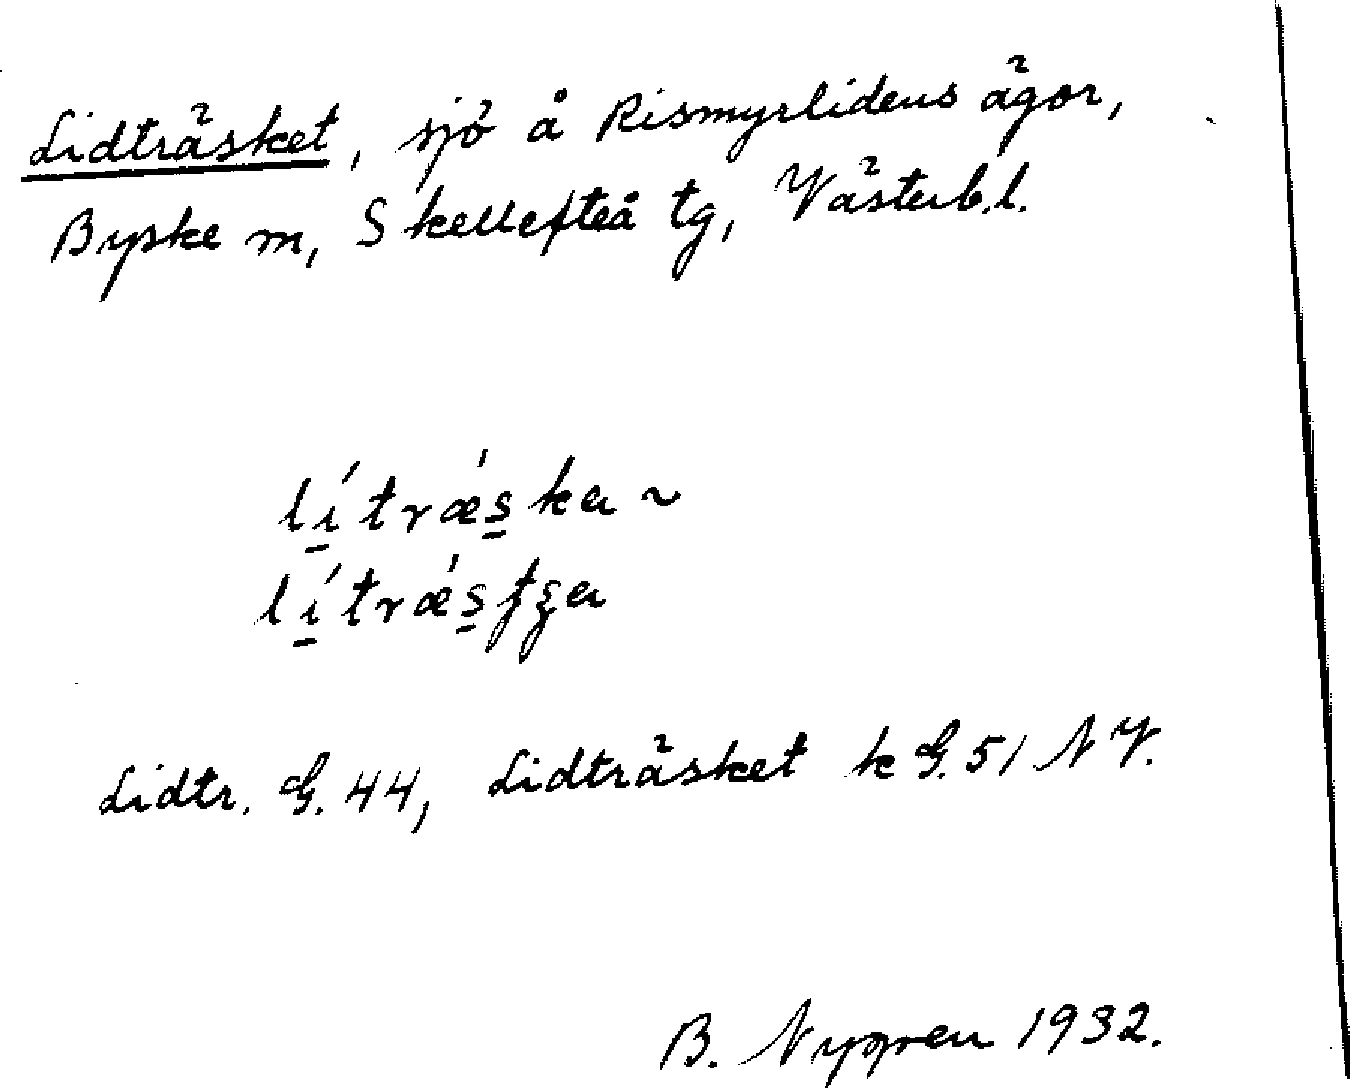 Lidträsket, sjö å Rismyrlidens ägor,
Byske sn, Skellefteå tg, Västerb.l.
lítræ̀ska ~
Lidtr. G. 44, Lidträsket k G. 51 NV.
B. Nygren 1932.